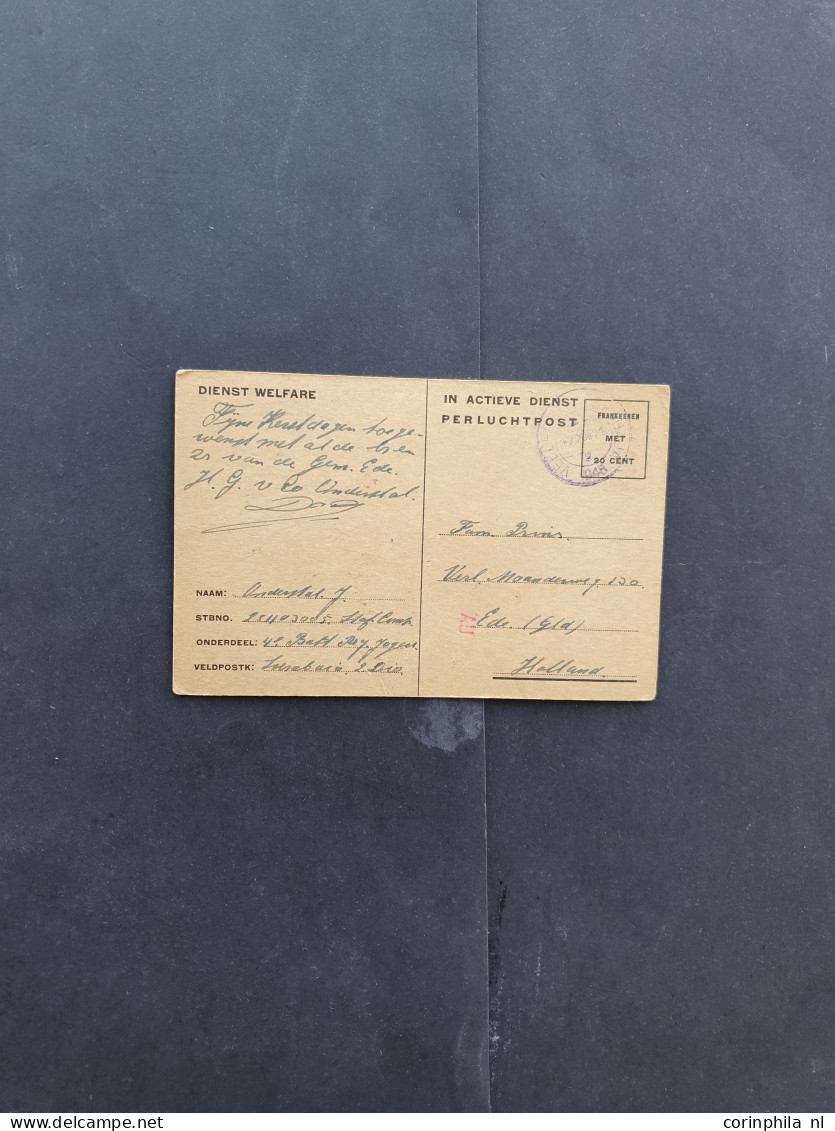 DIENST WELFARE
Fijne Kerstdagen toege-
wenst met al de 
van de Gem. Ede.
H. G. v Onderstal.
NAAM: Onderstal. J.
STBNO.
ONDERDEEL: 4e Batt Reg. Jagers
VELDPOSTK: Soerabaia
IN ACTIEVE DIENST
PER LUCHTPOST
FRANKEEREN
MET
20 CENT
Fam. Prins.
Verl. Maanderweg. 130.
Ede. (Gld)
Holland.
www.delcampe.net
corinphila nl